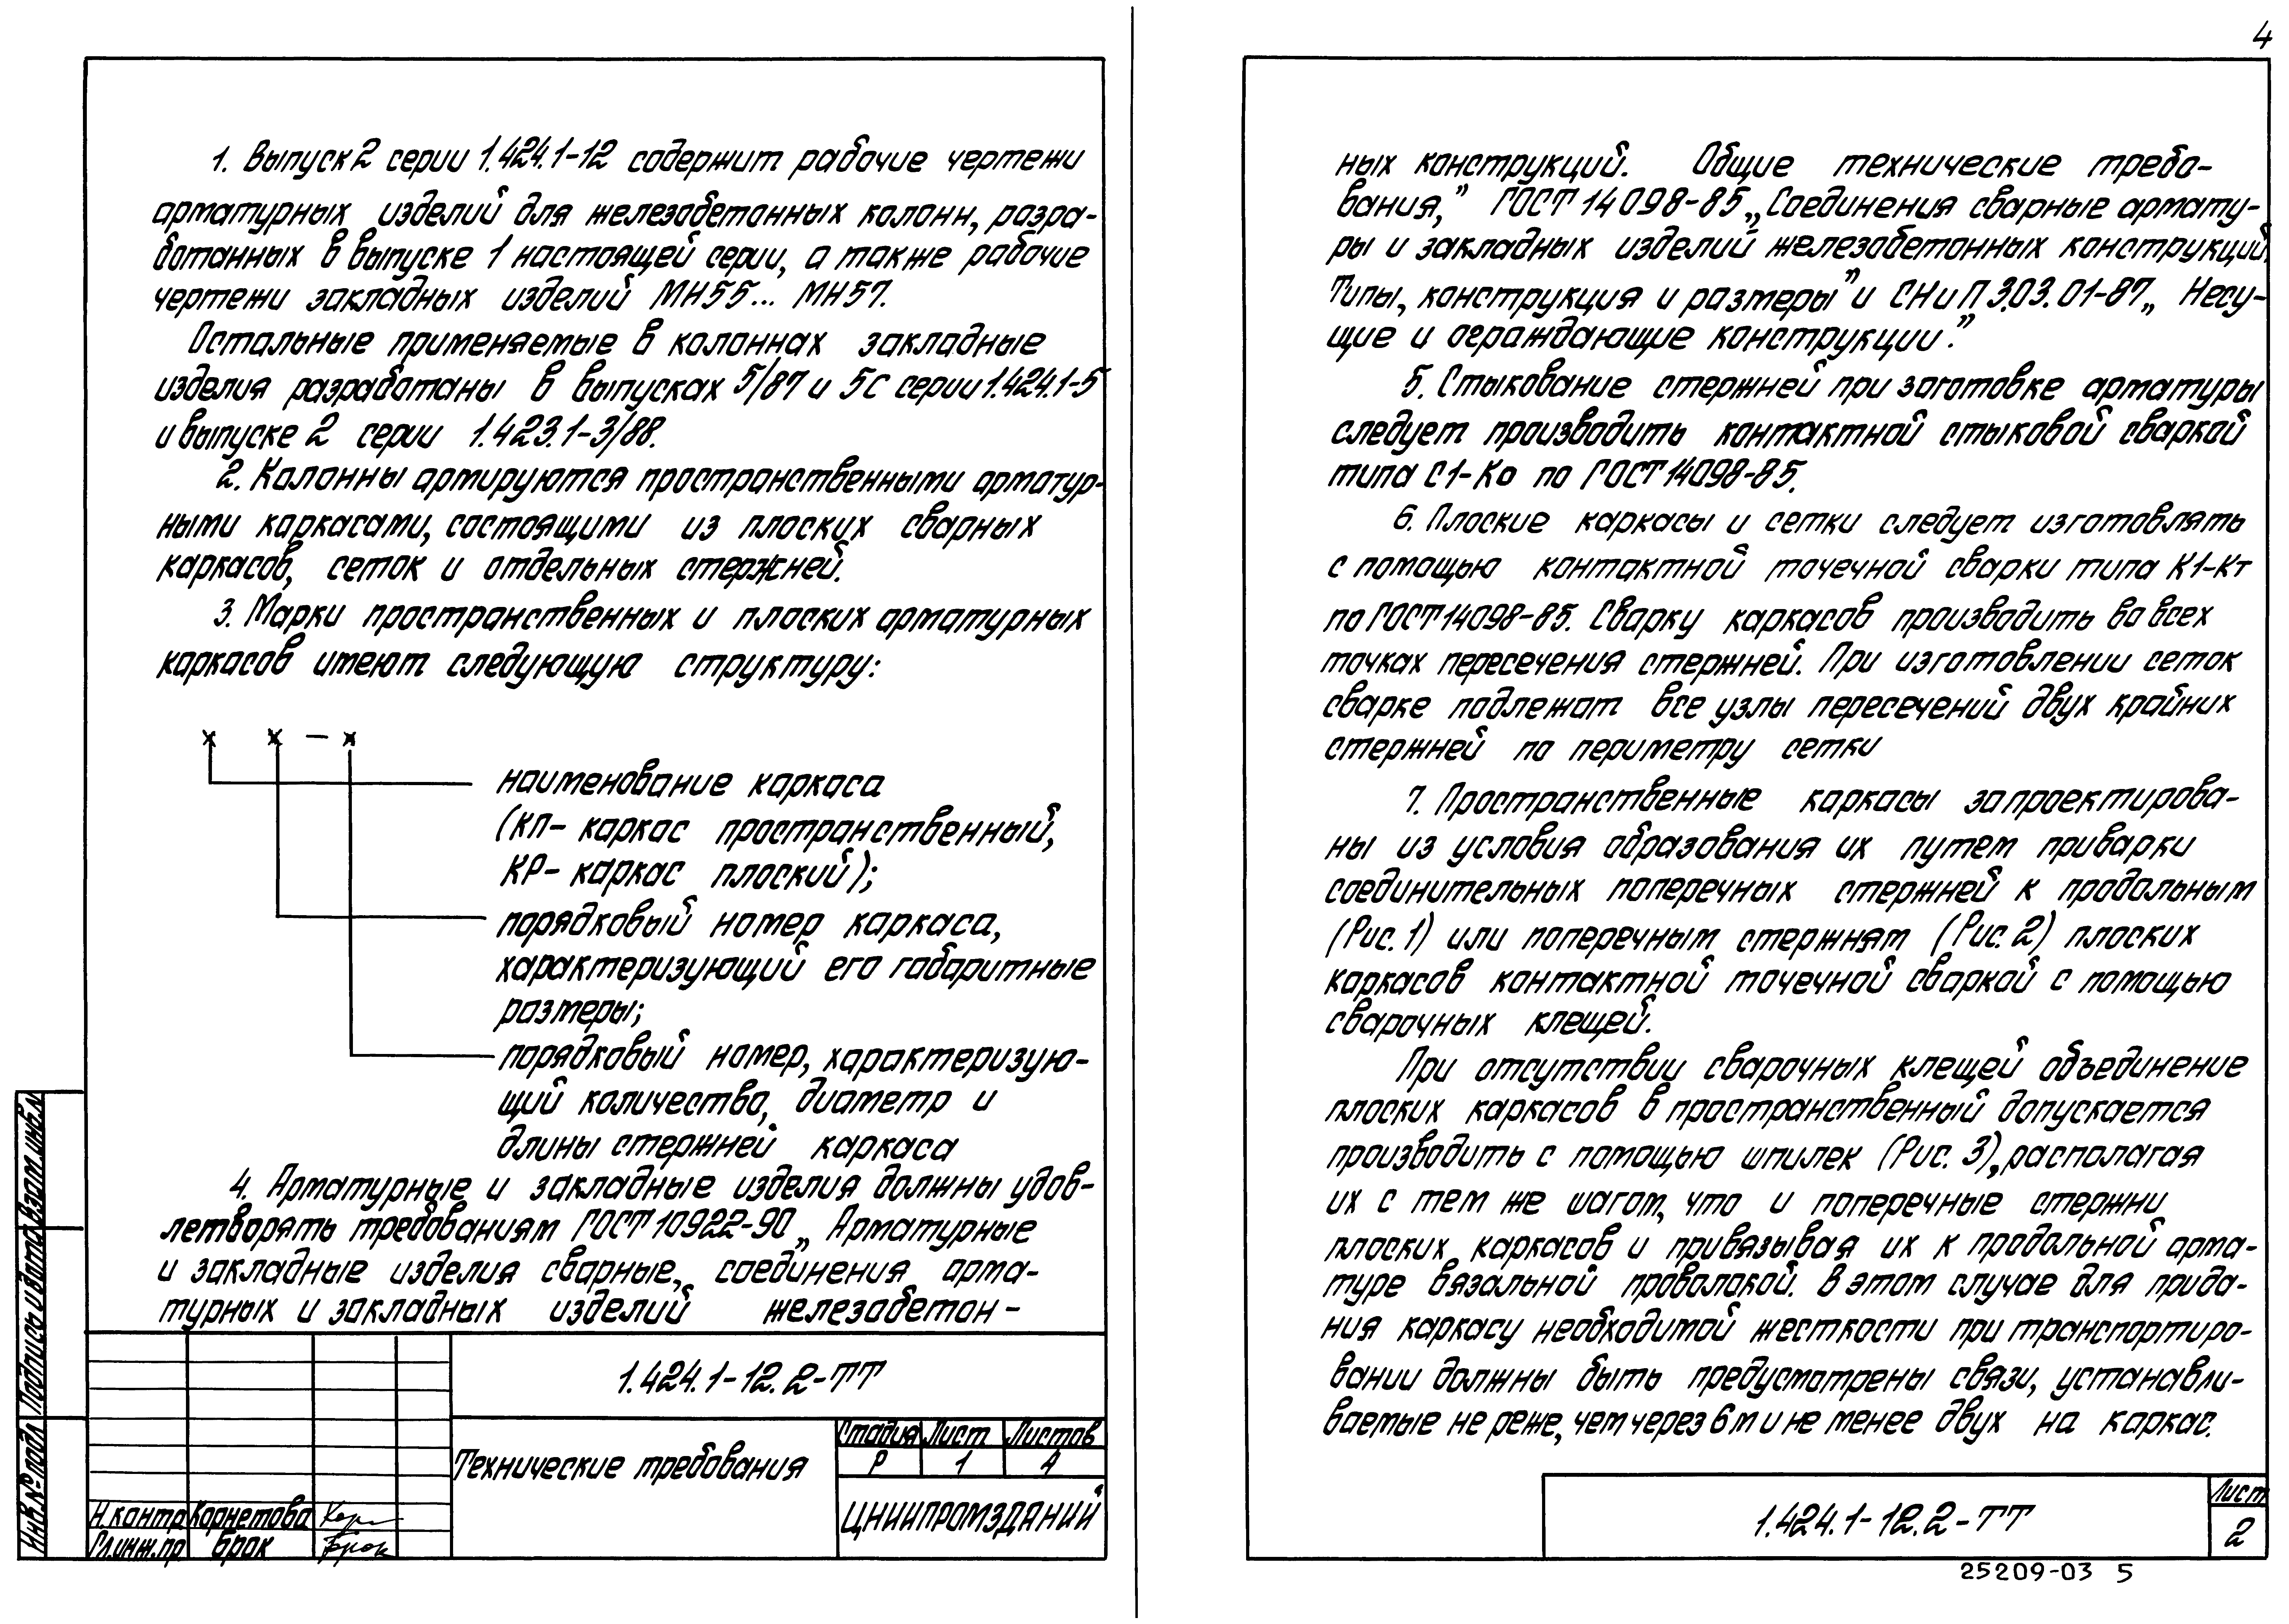 4
1. Выпуск 2 серии 1.424.1-12 содержит рабочие чертежи
арматурных изделий для железобетонных колонн, разра-
ботанных в выпуске 1 настоящей серии, а также рабочие
чертежи закладных изделий МН55... МН57.
Остальные применяемые в колоннах закладные
изделия разработаны в выпусках 5/87 и 5С серии 1.424.1-5
и выпуске 2 серии 1.423.1-3/88.
2. Колонны армируются пространственными арматур-
ными каркасами, состоящими из плоских сварных
каркасов, сеток и отдельных стержней.
3. Марки пространственных и плоских арматурных
каркасов имеют следующую структуру:
х х - х
наименование каркаса
(КП- каркас пространственный,
КР- каркас плоский);
порядковый номер каркаса,
характеризующий его габаритные
размеры;
порядковый номер, характеризую-
щий количество, диаметр и
длины стержней каркаса
4. Арматурные и закладные изделия должны удов-
летворять требованиям ГОСТ 10922-90 „Арматурные
и закладные изделия сварные, соединения арма-
турных и закладных изделий железобетон-
1.424.1-12.2-ТТ
Технические требования
Стадия Лист Листов
Р 1 4
ЦНИИПРОМЗДАНИЙ
Н.контр Корнетова
Гл.инж.пр Брок
Инв.№ подл Подпись и дата Взам.инв.№
ных конструкций. Общие технические требо-
вания," ГОСТ 14098-85 „Соединения сварные армату-
ры и закладных изделий железобетонных конструкций.
Типы, конструкция и размеры" и СНиП 3.03.01-87 „Несу-
щие и ограждающие конструкции."
5. Стыкование стержней при заготовке арматуры
следует производить контактной стыковой сваркой
типа С1-Ко по ГОСТ 14098-85.
6. Плоские каркасы и сетки следует изготовлять
с помощью контактной точечной сварки типа К1-Кт
по ГОСТ 14098-85. Сварку каркасов производить во всех
точках пересечения стержней. При изготовлении сеток
сварке подлежат все узлы пересечений двух крайних
стержней по периметру сетки
7. Пространственные каркасы запроектирова-
ны из условия образования их путем приварки
соединительных поперечных стержней к продольным
(Рис. 1) или поперечным стержням (Рис. 2) плоских
каркасов контактной точечной сваркой с помощью
сварочных клещей.
При отсутствии сварочных клещей объединение
плоских каркасов в пространственный допускается
производить с помощью шпилек (Рис. 3), располагая
их с тем же шагом, что и поперечные стержни
плоских каркасов и привязывая их к продольной арма-
туре вязальной проволокой. В этом случае для прида-
ния каркасу необходимой жесткости при транспортиро-
вании должны быть предусмотрены связи, устанавли-
ваемые не реже, чем через 6 м и не менее двух на каркас.
1.424.1-12.2-ТТ
Лист
2
25209-03 5